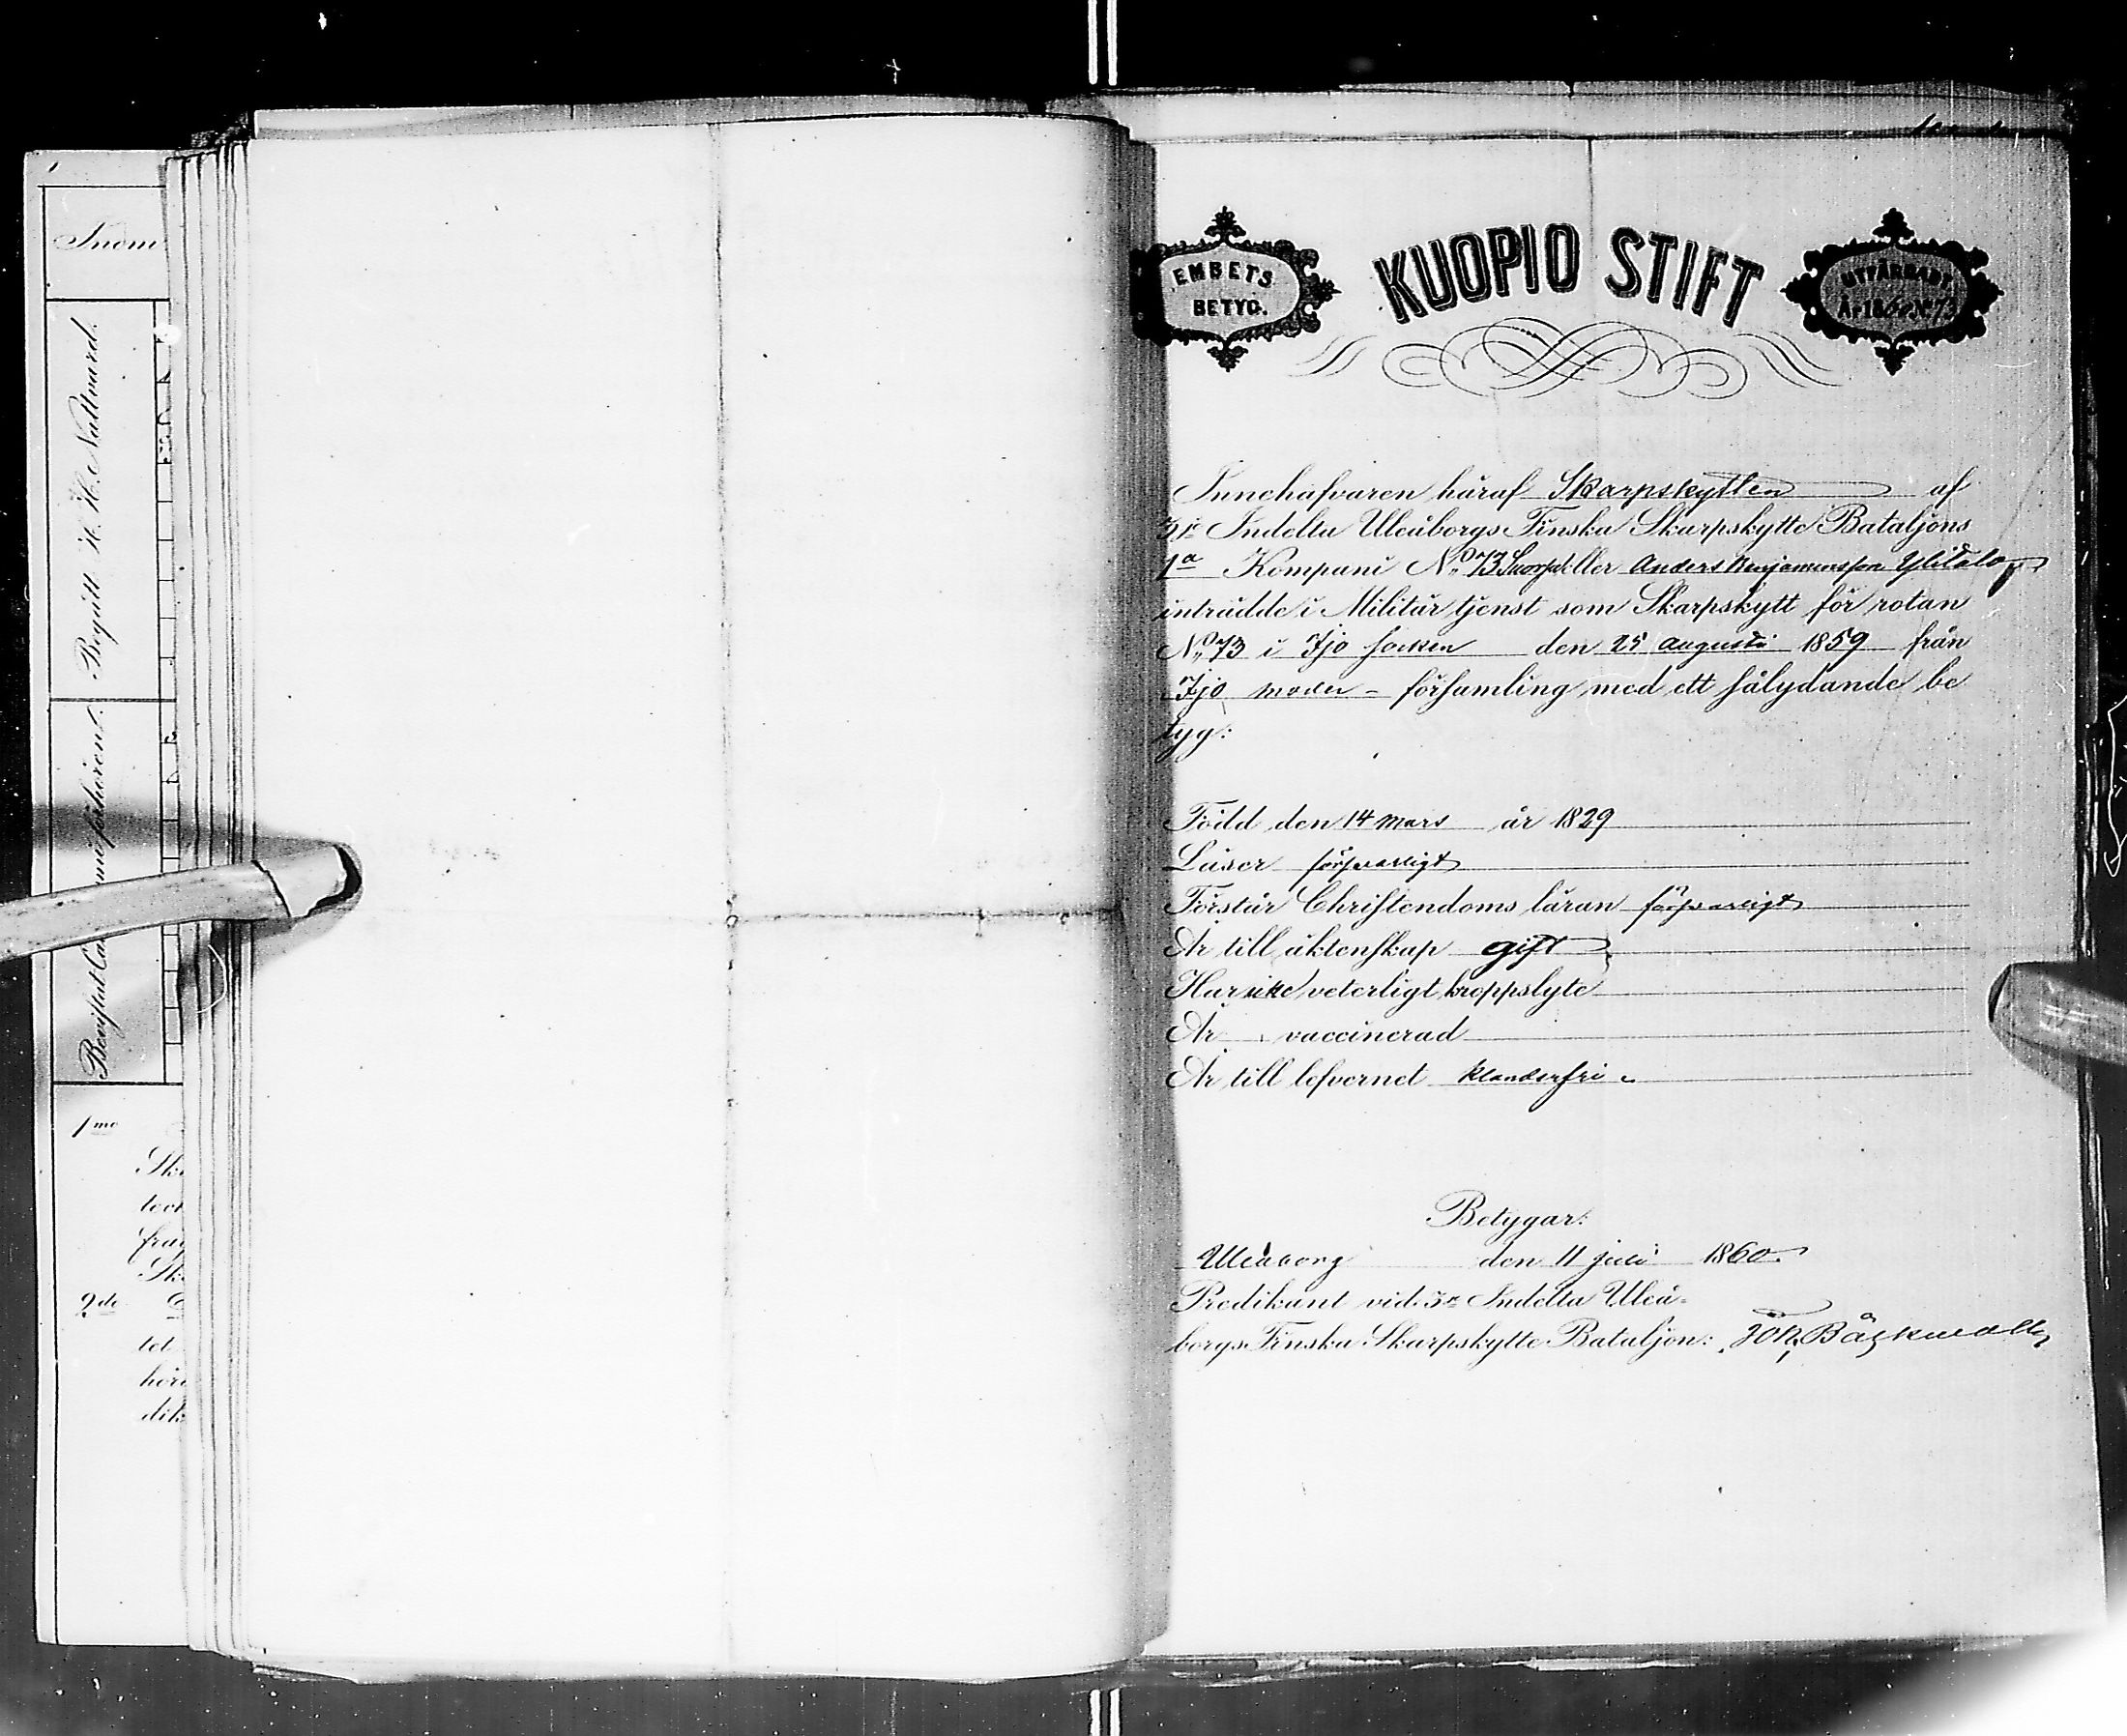 Inom
Begått H. H. Nattvard.
1mo
Sk
2do
tet
dik
EMBETS
BETYG.
KUOPIO STIFT
UTFÄRDADT
År 1860. No 73
Innehafvaren häraf Skarpskytten af
3je Indelta Uleåborgs Finska Skarpskytte Bataljons
1a Kompani No 73 Anders Benjaminsson Ylitalo
inträdde i Militär tjenst som Skarpskytt för rotan
No 73 i Ijo socken den 25 augusti 1859 från
Ijo moder-församling med ett sålydande be
tyg:
Född den 14 mars år 1829
Läser försvarligt
Förstår Christendoms läran försvarligt
Är till äktenskap gift
Har icke veterligt kroppslyte
Är vaccinerad
Är till lefvernet klanderfri
Betygar:
Uleåborg den 11 juli 1860.
Predikant vid 3e Indelta Uleå-
borgs Finska Skarpskytte Bataljon: Joh. Bäckwall